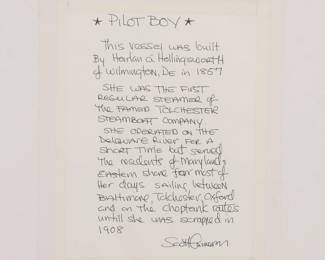 ★ PILOT BOY ★
This vessey was built
By Harlan & Hollingsworth
of Wilmington, De in 1857
SHE WAS THE FIRST
REGULAR STEAMER of
THE FAMED TOLCHESTER
STEAMBOAT COMPANY.
SHE OPERATED ON THE
DELAWARE RIVER FOR A
SHORT TIME but served
The residents of Maryland,
Eastern shore for most of
Her days sailing between
Baltimore, Tolchester, Oxford
and on the Choptank routes
untill she was scrapped in
1908